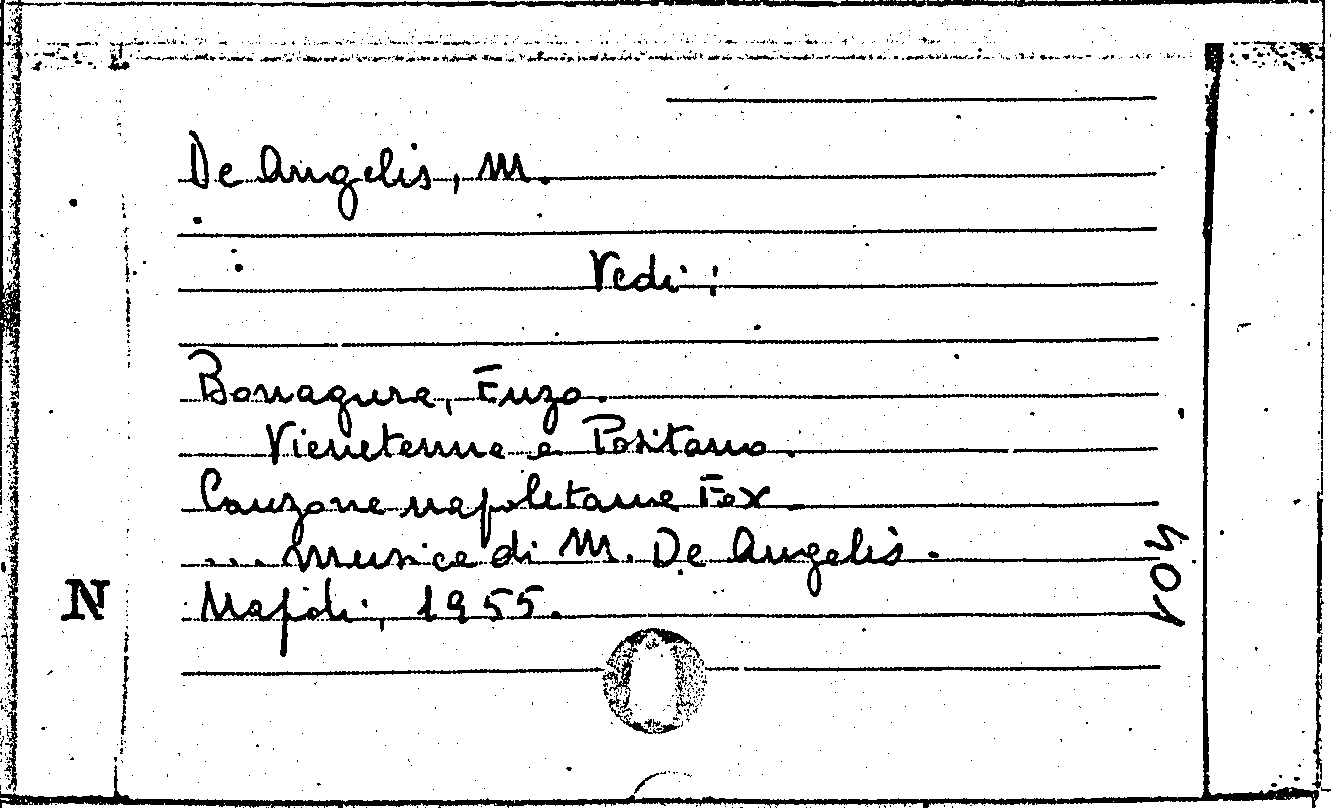 De Angelis, M.
Vedi:
Bonagura, Enzo.
Vienetenne a Positano.
Canzone napoletana Fox
... musica di M. De Angelis.
Napoli, 1955.
N
104